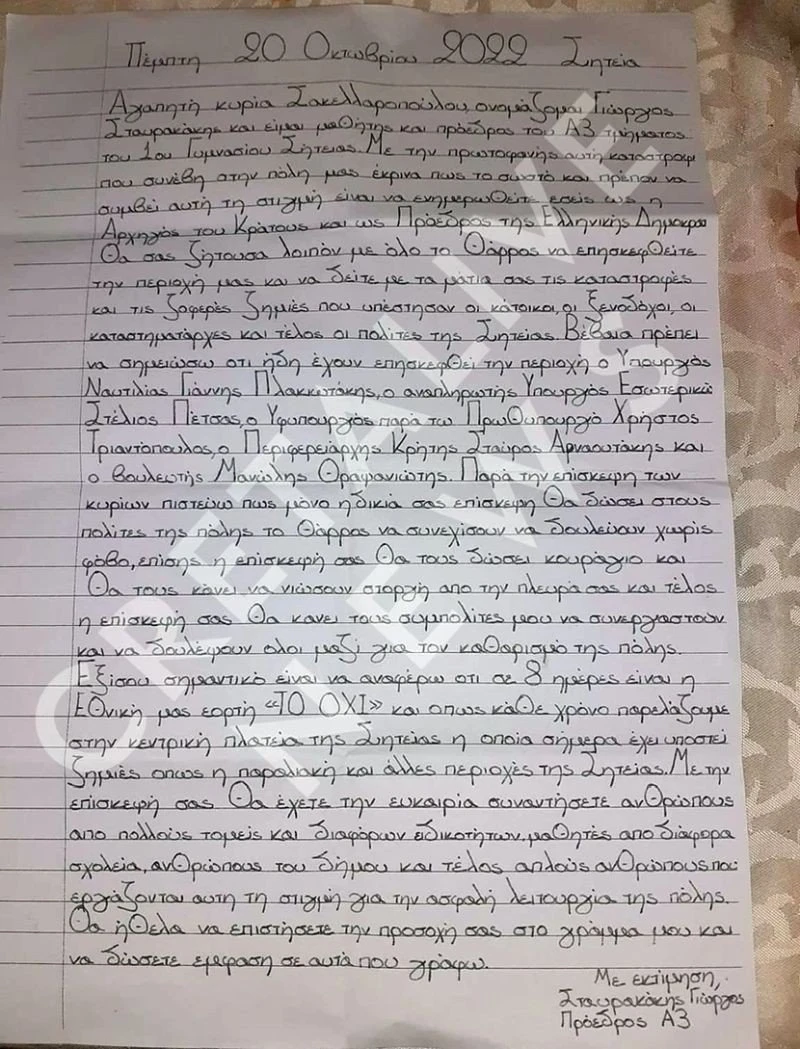 Πέμπτη 20 Οκτωβρίου 2022 Σητεία
Αγαπητή κυρία Σακελλαροπούλου, ονομάζομαι Γιώργος
Σταυρακάκης και είμαι μαθητής και πρόεδρος του Α3 τμήματος
του 1ου Γυμνασίου Σητείας. Με την πρωτοφανής αυτή καταστροφή
που συνέβη στην πόλη μας έκρινα πως το σωστό και πρέπον να
συμβεί αυτή τη στιγμή είναι να ενημερωθείτε εσείς ως η
Αρχηγός του Κράτους και ως Πρόεδρος της Ελληνικής Δημοκρα
Θα σας ζήτουσα λοιπόν με όλο το Θάρρος να επησκεφθείτε
την περιοχή μας και να δείτε με τα μάτια σας τις καταστροφές
και τις ζοφερές ζημιές που υπέστησαν οι κάτοικοι, οι ξενοδόχοι, οι
καταστηματάρχες και τέλος οι πολίτες της Σητείας. Βέβαια πρέπει
να σημειώσω οτι ήδη έχουν επησκεφθεί την περιοχή ο Υπουργός
Ναυτιλίας Γιάννης Πλακιωτάκης, ο αναπληρωτής Υπουργός Εσωτερικώ
Στέλιος Πέτσας, ο Υφυπουργός παρά τω Πρωθυπουργό Χρήστος
Τριαντόπουλος, ο Περιφερειάρχης Κρήτης Σταύρος Αρναουτάκης και
ο βουλευτής Μανώλης Θραψανιώτης. Παρά την επίσκεψη των
κυρίων πιστεύω πως μόνο η δικιά σας επίσκεψη Θα δώσει στους
πολίτες της πόλης το Θάρρος να συνεχίσουν να δουλεύουν χωρίς
φόβο, επίσης η επίσκεψή σας Θα τους δώσει κουράγιο και
Θα τους κάνει να νιώσουν στοργή απο την πλευρά σας και τέλος
η επίσκεψή σας Θα κανει τους συμπολίτες μου να συνεργιαστούν
και να δουλέψουν ολοι μαζί για τον καθαρισμό της πόλης.
Εξίσου σημαντικό είναι να αναφέρω οτι σε 8 ημέρες είναι η
Εθνική μας εορτή «ΤΟ ΟΧΙ» και οπως κάθε χρόνο παρελάζουμε
στην κεντρική πλατεία της Σητείας η οποία σήμερα έχει υποστεί
ζημιές οπως η παραλιακή και άλλες περιοχές της Σητείας. Με την
επίσκεψή σας Θα έχετε την ευκαιρία συναντήσετε ανθρώπους
απο πολλούς τομείς και διαφόρων ειδικοτήτων, μαθητές απο διάφορα
σχολεία, ανθρώπους του δήμου και τέλος απλούς ανθρώπους που
εργάζονται αυτη τη στιγμή για την ασφαλή λειτουργία της πόλης.
Θα ήθελα να επιστήσετε την προσοχή σας στο γράμμα μου και
να δώσετε εμφαση σε αυτά που γράφω.
Με εκτίμηση,
Σταυρακάκης Γιώργος
Πρόεδρος Α3
CRETALIVE
NEWS